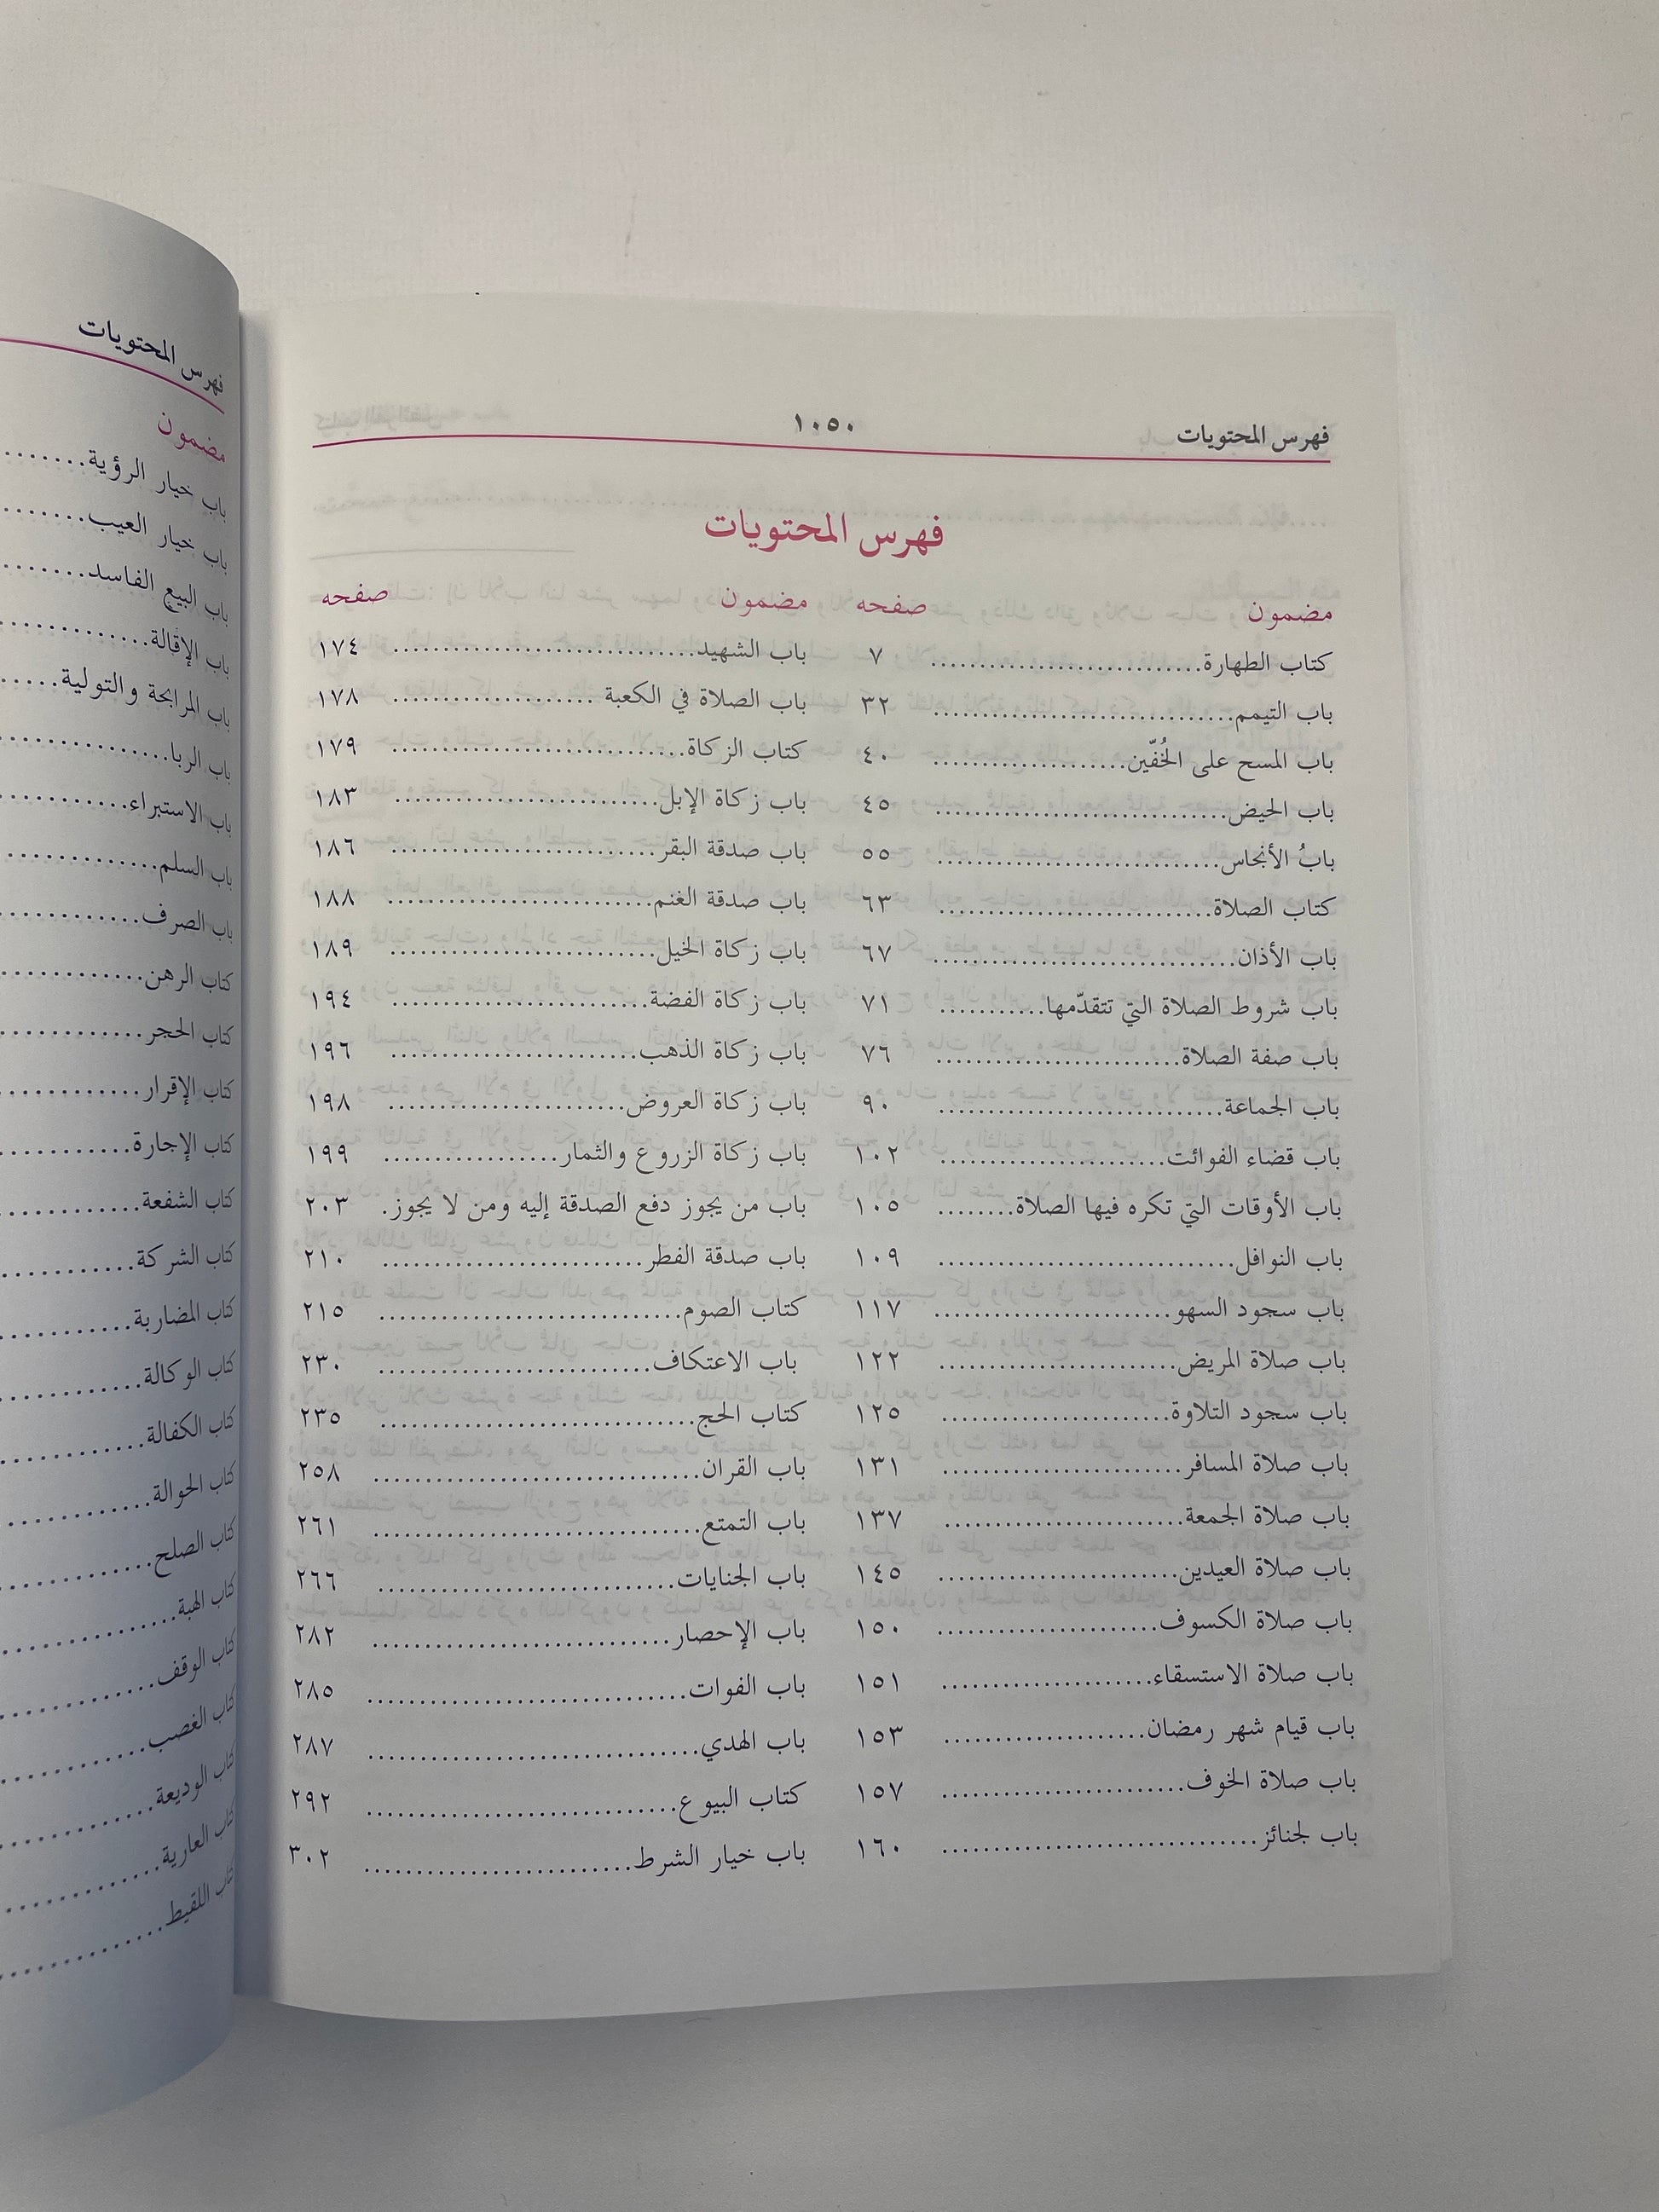 فهرس المحتويات
١٠٥٠
فهرس المحتويات
مضمون صفحه
كتاب الطهارة........................... ٧
باب التيمم............................. ٣٢
باب المسح على الخُفّين................... ٤٠
باب الحيض............................. ٤٥
بابُ الأنجاس............................ ٥٥
كتاب الصلاة........................... ٦٣
باب الأذان............................. ٦٧
باب شروط الصلاة التي تتقدّمها........... ٧١
باب صفة الصلاة........................ ٧٦
باب الجماعة............................ ٩٠
باب قضاء الفوائت...................... ١٠٢
باب الأوقات التي تكره فيها الصلاة........ ١٠٥
باب النوافل............................. ١٠٩
باب سجود السهو........................ ١١٧
باب صلاة المريض....................... ١٢٢
باب سجود التلاوة....................... ١٢٥
باب صلاة المسافر....................... ١٣١
باب صلاة الجمعة........................ ١٣٧
باب صلاة العيدين....................... ١٤٥
باب صلاة الكسوف...................... ١٥٠
باب صلاة الاستسقاء..................... ١٥١
باب قيام شهر رمضان.................... ١٥٣
باب صلاة الخوف........................ ١٥٧
باب لجنائز.............................. ١٦٠
مضمون صفحه
باب الشهيد............................. ١٧٤
باب الصلاة في الكعبة ................... ١٧٨
كتاب الزكاة............................. ١٧٩
باب زكاة الإبل.......................... ١٨٣
باب صدقة البقر.......................... ١٨٦
باب صدقة الغنم.......................... ١٨٨
باب زكاة الخيل.......................... ١٨٩
باب زكاة الفضة......................... ١٩٤
باب زكاة الذهب........................ ١٩٦
باب زكاة العروض....................... ١٩٨
باب زكاة الزروع والثمار................. ١٩٩
باب من يجوز دفع الصدقة إليه ومن لا يجوز. ٢٠٣
باب صدقة الفطر......................... ٢١٠
كتاب الصوم............................ ٢١٥
باب الاعتكاف.......................... ٢٣٠
كتاب الحج.............................. ٢٣٥
باب القران............................... ٢٥٨
باب التمتع............................... ٢٦١
باب الجنايات............................. ٢٦٦
باب الإحصار............................ ٢٨٢
باب الفوات.............................. ٢٨٥
باب الهدي............................... ٢٨٧
كتاب البيوع............................. ٢٩٢
باب خيار الشرط......................... ٣٠٢
فهرس المحتويات
مضمون
باب خيار الرؤية........
باب خيار العيب........
باب البيع الفاسد........
باب الإقالة.............
باب المرابحة والتولية.....
باب الربا...............
باب الاستبراء...........
باب السلم.............
باب الصرف............
كتاب الرهن............
كتاب الحجر............
كتاب الإقرار............
كتاب الإجارة...........
كتاب الشفعة............
كتاب الشركة...........
كتاب المضاربة...........
كتاب الوكالة...........
كتاب الكفالة...........
كتاب الحوالة............
كتاب الصلح............
كتاب الهبة..............
كتاب الوقف............
كتاب الغصب...........
كتاب الوديعة............
كتاب العارية............
كتاب اللقيط............